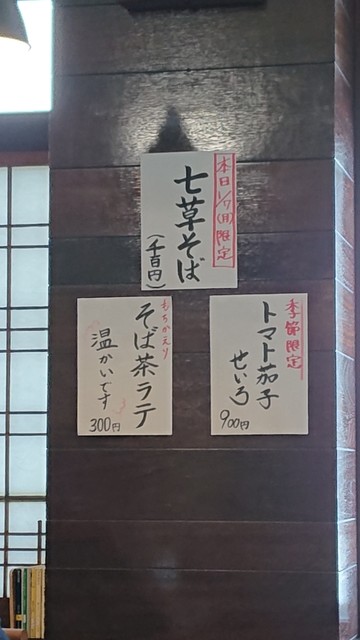 本日1/7(月)限定
七草そば
(千百円)
季節限定
トマト茄子
せいろ
900円
もちかえり
そば茶ラテ
温かいです
300円